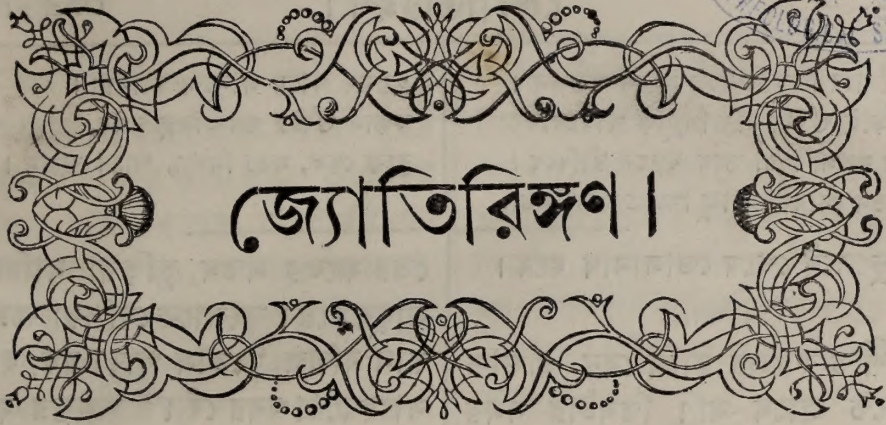 জ্যোতিরিঙ্গণ।